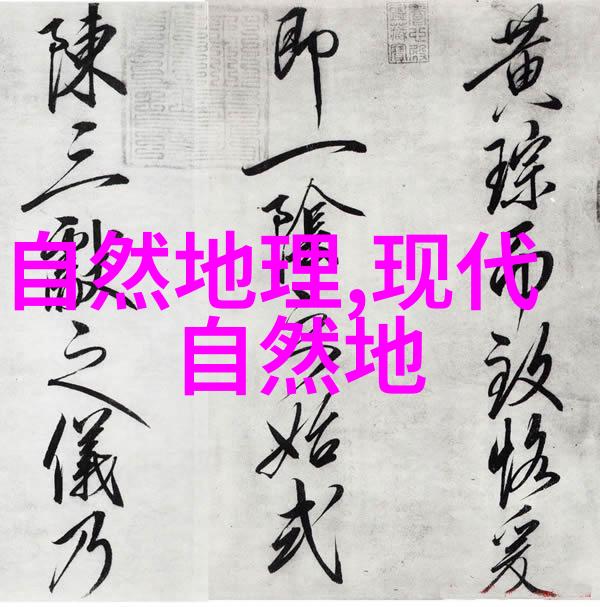 自然地理,现代
自然地
黄琮而致恪爰
即一陰始式
陳三獻之儀乃